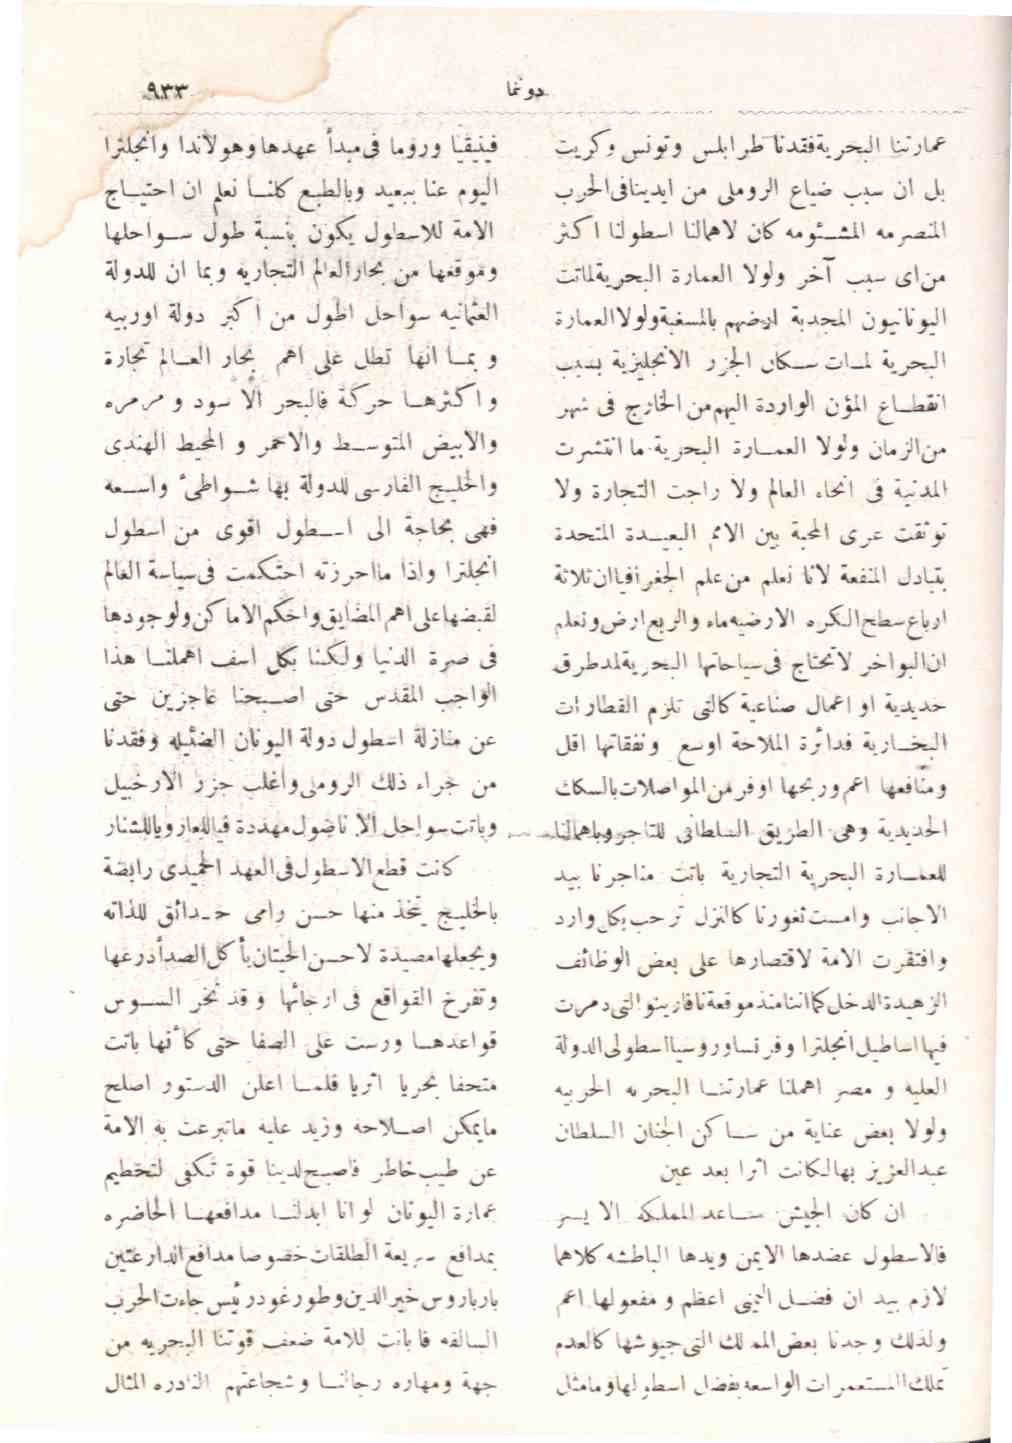 دونما
٩٣٣
عمارتنا البحرية فقدنا طرابلس وتونس وكريت
بل ان سبب ضياع الروملي من ايدينا في الحرب
المنصرمه المشئومه كان لاهمالنا اسطولنا اكثر
من اى سبب آخر ولولا العمارة البحرية لماتت
اليونانيون المجدبة ارضهم بالمسغبة ولولا العمارة
البحرية لمات سكان الجزر الانجليزية بسبب
انقطاع المؤن الواردة اليهم من الخارج فى شهر
من الزمان ولولا العمارة البحرية ما انتشرت
المدنية فى انحاء العالم ولا راجت التجارة ولا
توثقت عرى المحبة بين الامم البعيدة المتحدة
بتبادل المنفعة لانا نعلم من علم الجغرافيا ان ثلاثة
ارباع سطح الكره الارضيه ماء والربع ارض ونعلم
ان البواخر لاتحتاج فى سياحاتها البحرية لمد طرق
حديدية او اعمال صناعية كالتى تلزم القطارات
البخارية فدائرة الملاحة اوسع ونفقاتها اقل
ومنافعها اعم وربحها اوفر من المواصلات بالسكك
الحديدية وهى الطريق السلطانى للتاجر وباهمالنا
للعمارة البحرية التجارية باتت متاجرنا بيد
الاجانب وامست ثغورنا كالنزل ترحب بكل وارد
وافتقرت الامة لاقتصارها على بعض الوظائف
الزهيدة الدخل كما اننا منذ موقعة نافارينو التى دمرت
فيها اساطيل انجلترا وفرنسا وروسيا اسطولى الدولة
العليه و مصر اهملنا عمارتنا البحريه الحربيه
ولولا بعض عناية من ساكن الجنان السلطان
عبدالعزيز بها لكانت اثرا بعد عين
ان كان الجيش ساعد المملكه الايسر
فالاسطول عضدها الايمن ويدها الباطشه كلاهما
لازم بيد ان فضل اليمنى اعظم و مفعولها اعم
ولذلك وجدنا بعض الممالك التى جيوشها كالعدم
تملك المستعمرات الواسعه بفضل اسطولها وما مثل
فينيقيا وروما فى مبدأ عهدها وهولاندا وانجلترا
اليوم عنا ببعيد وبالطبع كلنا نعلم ان احتياج
الامة للاسطول يكون بنسبة طول سواحلها
وموقعها من بحار العالم التجاريه وبما ان للدولة
العثمانيه سواحل اطول من اكبر دولة اوربيه
و بما انها تطل على اهم بحار العالم تجارة
و اكثرها حركة فالبحر الاسود و مرمره
والابيض المتوسط والاحمر و المحيط الهندى
والخليج الفارسى للدولة بها شواطئ واسعه
فهى بحاجة الى اسطول اقوى من اسطول
انجلترا واذا ما احرزته احتكمت فى سياسة العالم
لقبضها على اهم المضايق واحكم الاماكن ولوجودها
فى صرة الدنيا ولكنا بكل اسف اهملنا هذا
الواجب المقدس حتى اصبحنا عاجزين حتى
عن منازلة اسطول دولة اليونان الضئيله وفقدنا
من جراء ذلك الروملى واغلب جزر الارخبيل
وباتت سواحل الاناضول مهددة فياللعار وياللشنار
كانت قطع الاسطول فى العهد الحميدى رابضة
بالخليج يتخذ منها حسن رامى حدائق للذاته
ويجعلها مصيدة لاحسن الحيتان يأكل الصدأ درعها
وتفرخ القواقع فى ارجائها وقد نخر السوس
قواعدها ورست على الصفا حتى كأنها باتت
متحفا بحريا اثريا فلما اعلن الدستور اصلح
مايمكن اصلاحه وزيد عليه ماتبرعت به الامة
عن طيب خاطر فاصبح لدينا قوة تكفى لتحطيم
عمارة اليونان لو انا ابدلنا مدافعها الحاضره
بمدافع سريعة الطلقات خصوصا مدافع الدارعتين
بارباروس خيرالدين وطورغود رئيس جاءت الحرب
السالفه فابانت للامة ضعف قوتنا البحريه من
جهة ومهاره رجالنا وشجاعتهم النادره المثال